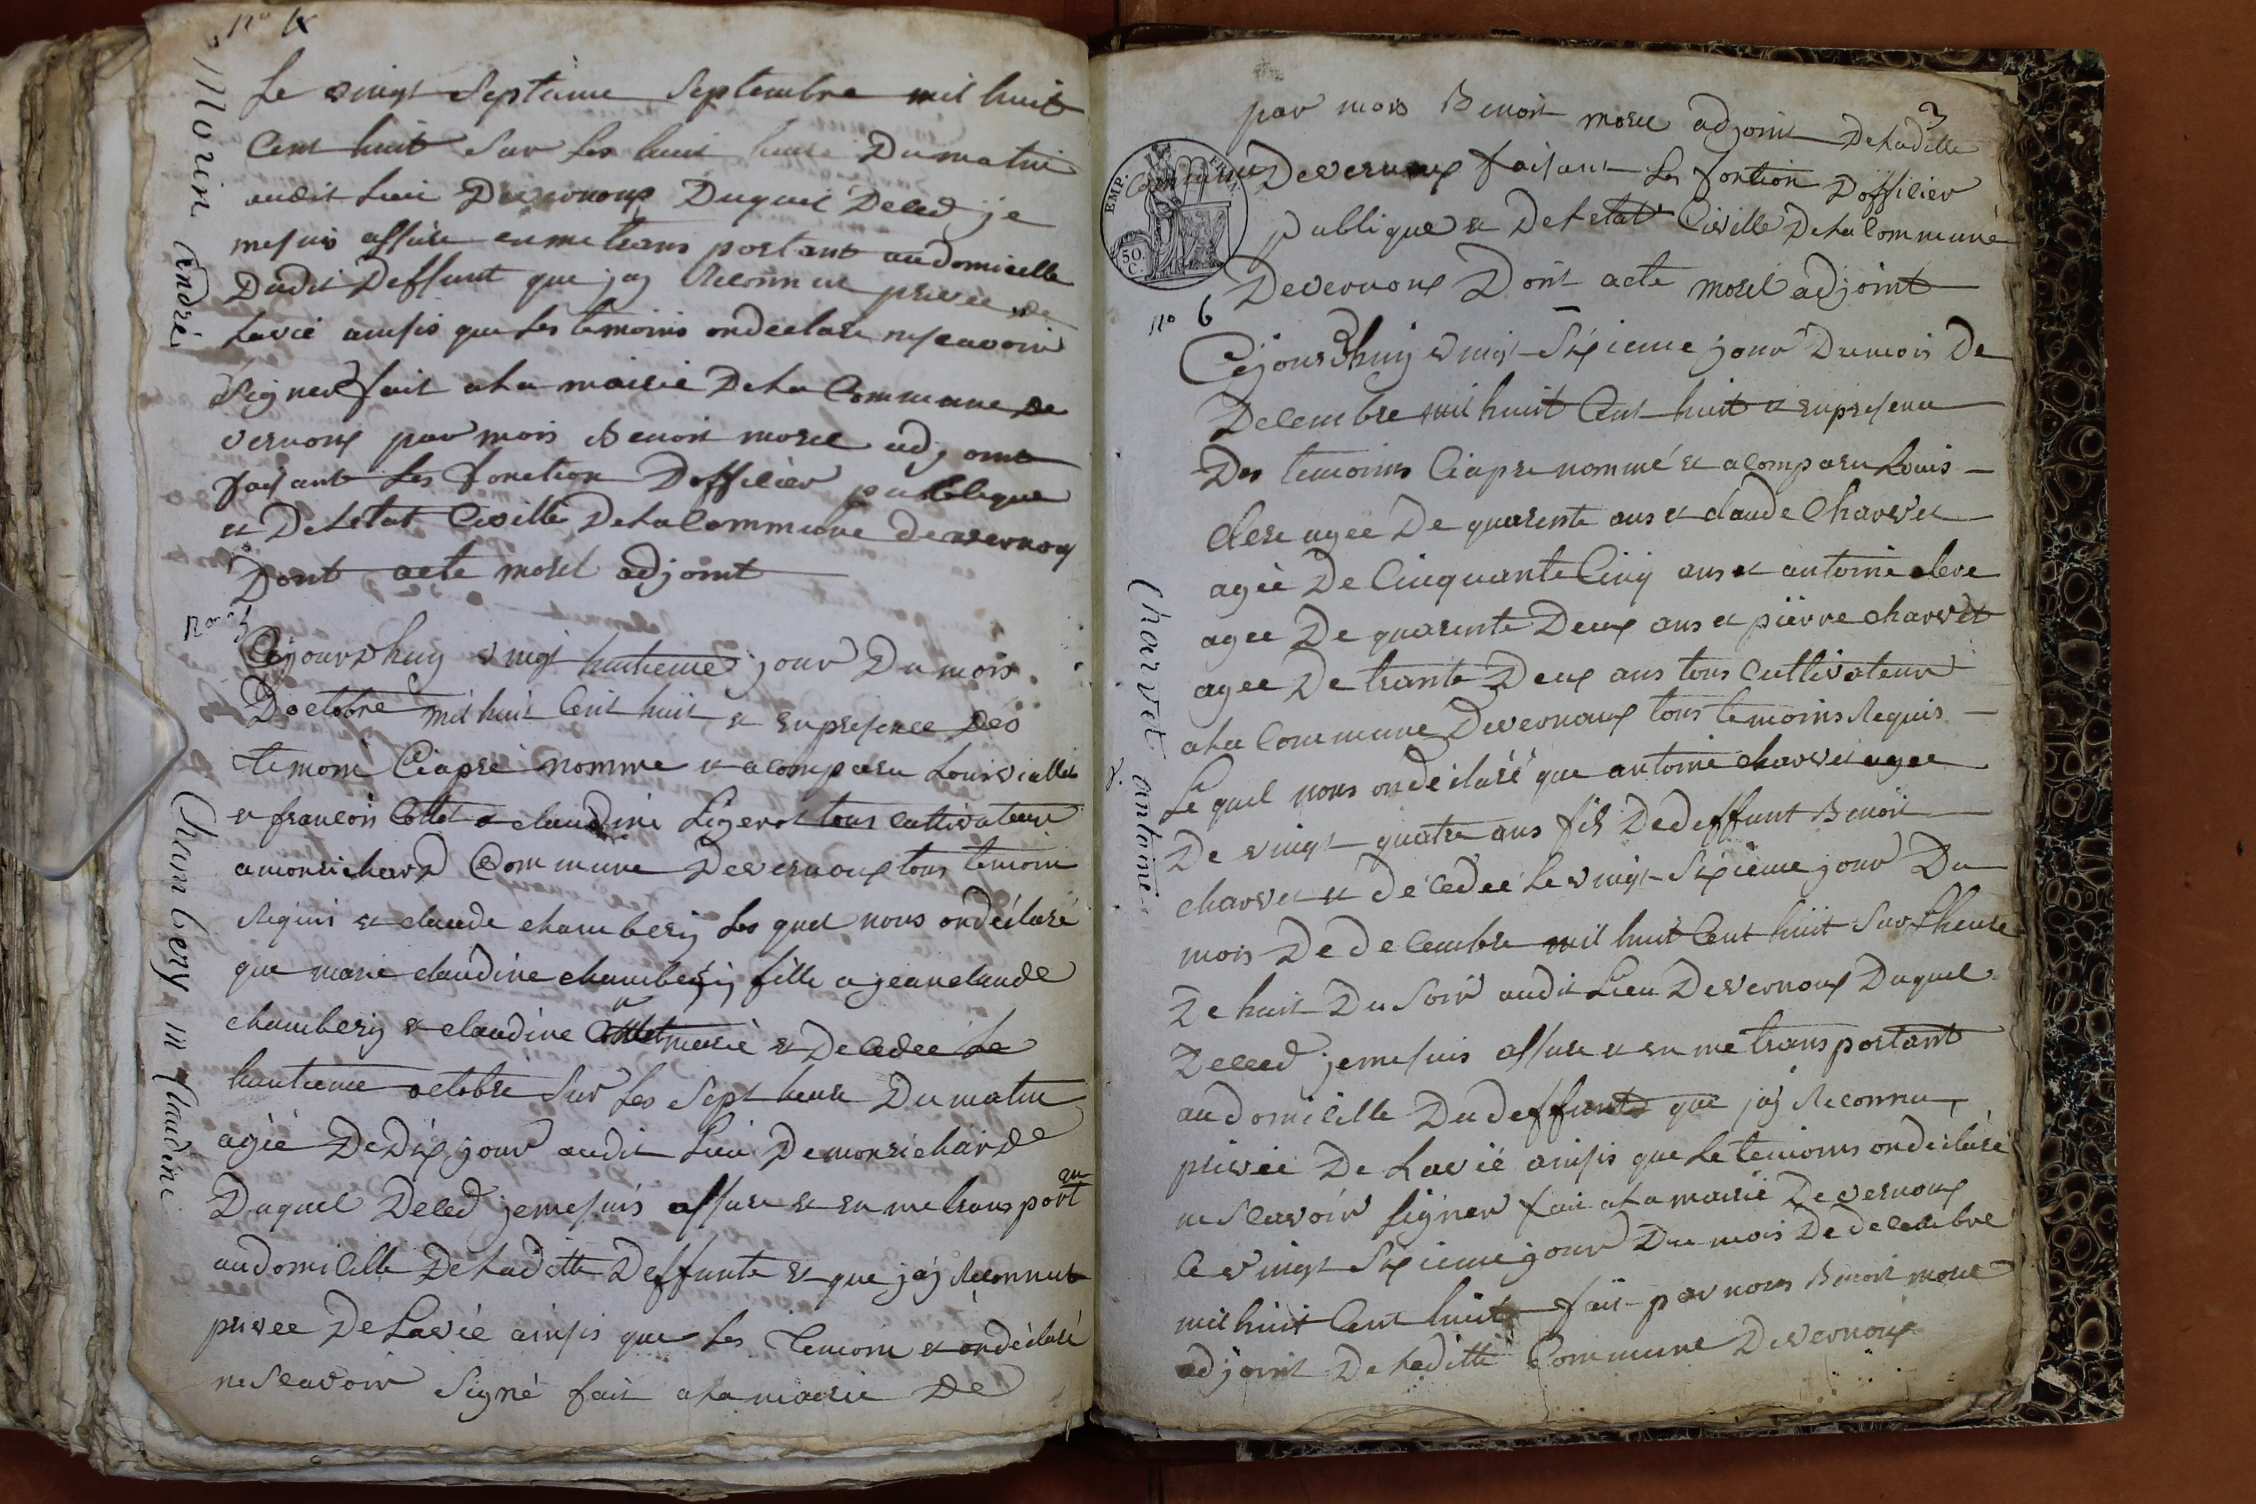 Morin André
Le vingt Septieme Septembre mil huit
Cent huit Sur Les huit heure Du matin
audit Lieu Devernoux Duquel Deced je
mesuis assure enmetrans portant audomicille
Dudit Deffunt que jay Reconnue privee de
Lavie ainsis que Les temoins ondeclare nesavoir
Signer fait aLa mairie DeLa Commune De
vernoux par mois Benoit morel adjoint
faisant Les fonction Dofficier publique
et DeLetat Civille DeLaCommune devernoux
Dont acte morel adjoint
Chambery m Claudine
Cejourdhuy vingt huitieme jour Du mois
Doctobre mil huit Cent huit et enpresence Des
temoin Ciapre nomme et acomparu Louis viallet
et francois Collet et claudine Ligerot tous cultivateur
amonrichard Commune Devernoux tous temoin
Requis et claude chambery Les quel nous ondéclaré
que marie claudine chambery fille ajeanclaude
chambery et claudine Collet marié et Decedee Le
huitieme octobre Sur Les Sept heure Dumatin
agéé DeDix jour audit Lieu Demonrichard
Duquel Deced jemesuis assure et en me transport an
audomicille DeLaditte Deffunte et que jay Reconnut
privee DeLavie ainsis que Les Temoin et ondéclaré
neSavoir Signé fait aLamairie De
3
par mois Benoit morel adjoint DeLaditte
Commune Devernoux faisant Les fontion Dofficier
EMP. FRAN.
50. C.
publique et DeLetat Civille DeLaCommune
Devernoux Dont acte morel adjoint
no 6
Charvet antoine
Cejourdhuy vingt Sixieme jour Dumois De
Decembre mil huit Cent huit et enpresence
Des temoins Ciapre nommé et acomparu Louis
clere agee De quarente ans et claude Charvet
agée De Cinquante Cinq ans et antoine clere
agee De quarente Deux ans et pierre charvet
agee De trante Deux ans tous Cultivateur
aLa Commune Devernoux tous temoins Requis
Le quel nous ondéclaré que antoine charvet agee
De vingt quatre ans fils Dedeffunt Benoit
charvet et décedeé Le vingt Sixieme jour Du
mois De decembre mil huit Cent huit Sur Lheure
De huit Du Soir audit Lieu Devernoux Duquel
Deced jemesuis assure et en me transportant
audomicille Dudeffunt que jay Reconnu
privée De Lavie ainsis que Le temoins ondéclaré
ne Seavoir Signer fait aLamairie Devernoux
Le vingt Sixieme jour Du mois De decembre
mil huit Cent huit fait par nous Benoit morel
adjoint DeLaditte Commune Devernoux